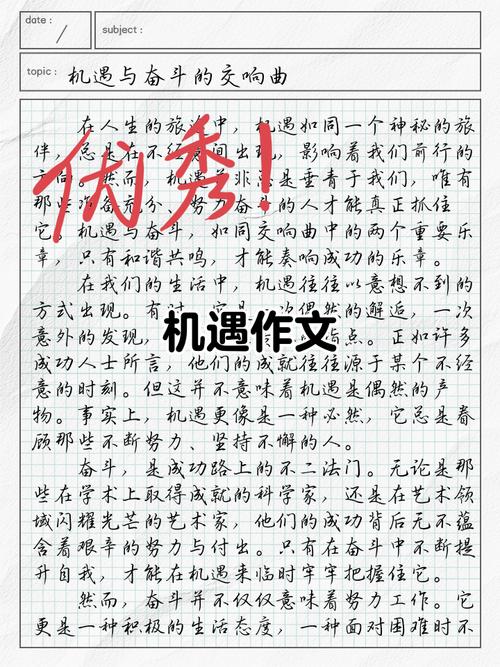 date :
subject :
topic : 机遇与奋斗的交响曲
在人生的旅途中，机遇如同一个神秘的旅
伴，总是在不经意间出现，影响着我们前行的
方向。然而，机遇并非总是垂青于我们，唯有
那些准备充分、努力奋斗的人才能真正抓住
它。机遇与奋斗，如同交响曲中的两个重要乐
章，只有和谐共鸣，才能奏响成功的乐章。
优秀！
在我们的生活中，机遇往往以意想不到的
方式出现。有时，它是一次偶然的邂逅，一次
意外的发现，
指点。正如许多
机遇作文
成功人士所言，他们的成就往往源于某个不经
意的时刻。但这并不意味着机遇是偶然的产
物。事实上，机遇更像是一种必然，它总是眷
顾那些不断努力、坚持不懈的人。
奋斗，是成功路上的不二法门。无论是那
些在学术上取得成就的科学家，还是在艺术领
域闪耀光芒的艺术家，他们的成功背后无不蕴
含着艰辛的努力与付出。只有在奋斗中不断提
升自我，才能在机遇来临时牢牢把握住它。
然而，奋斗并不仅仅意味着努力工作。它
更是一种积极的生活态度，一种面对困难时不